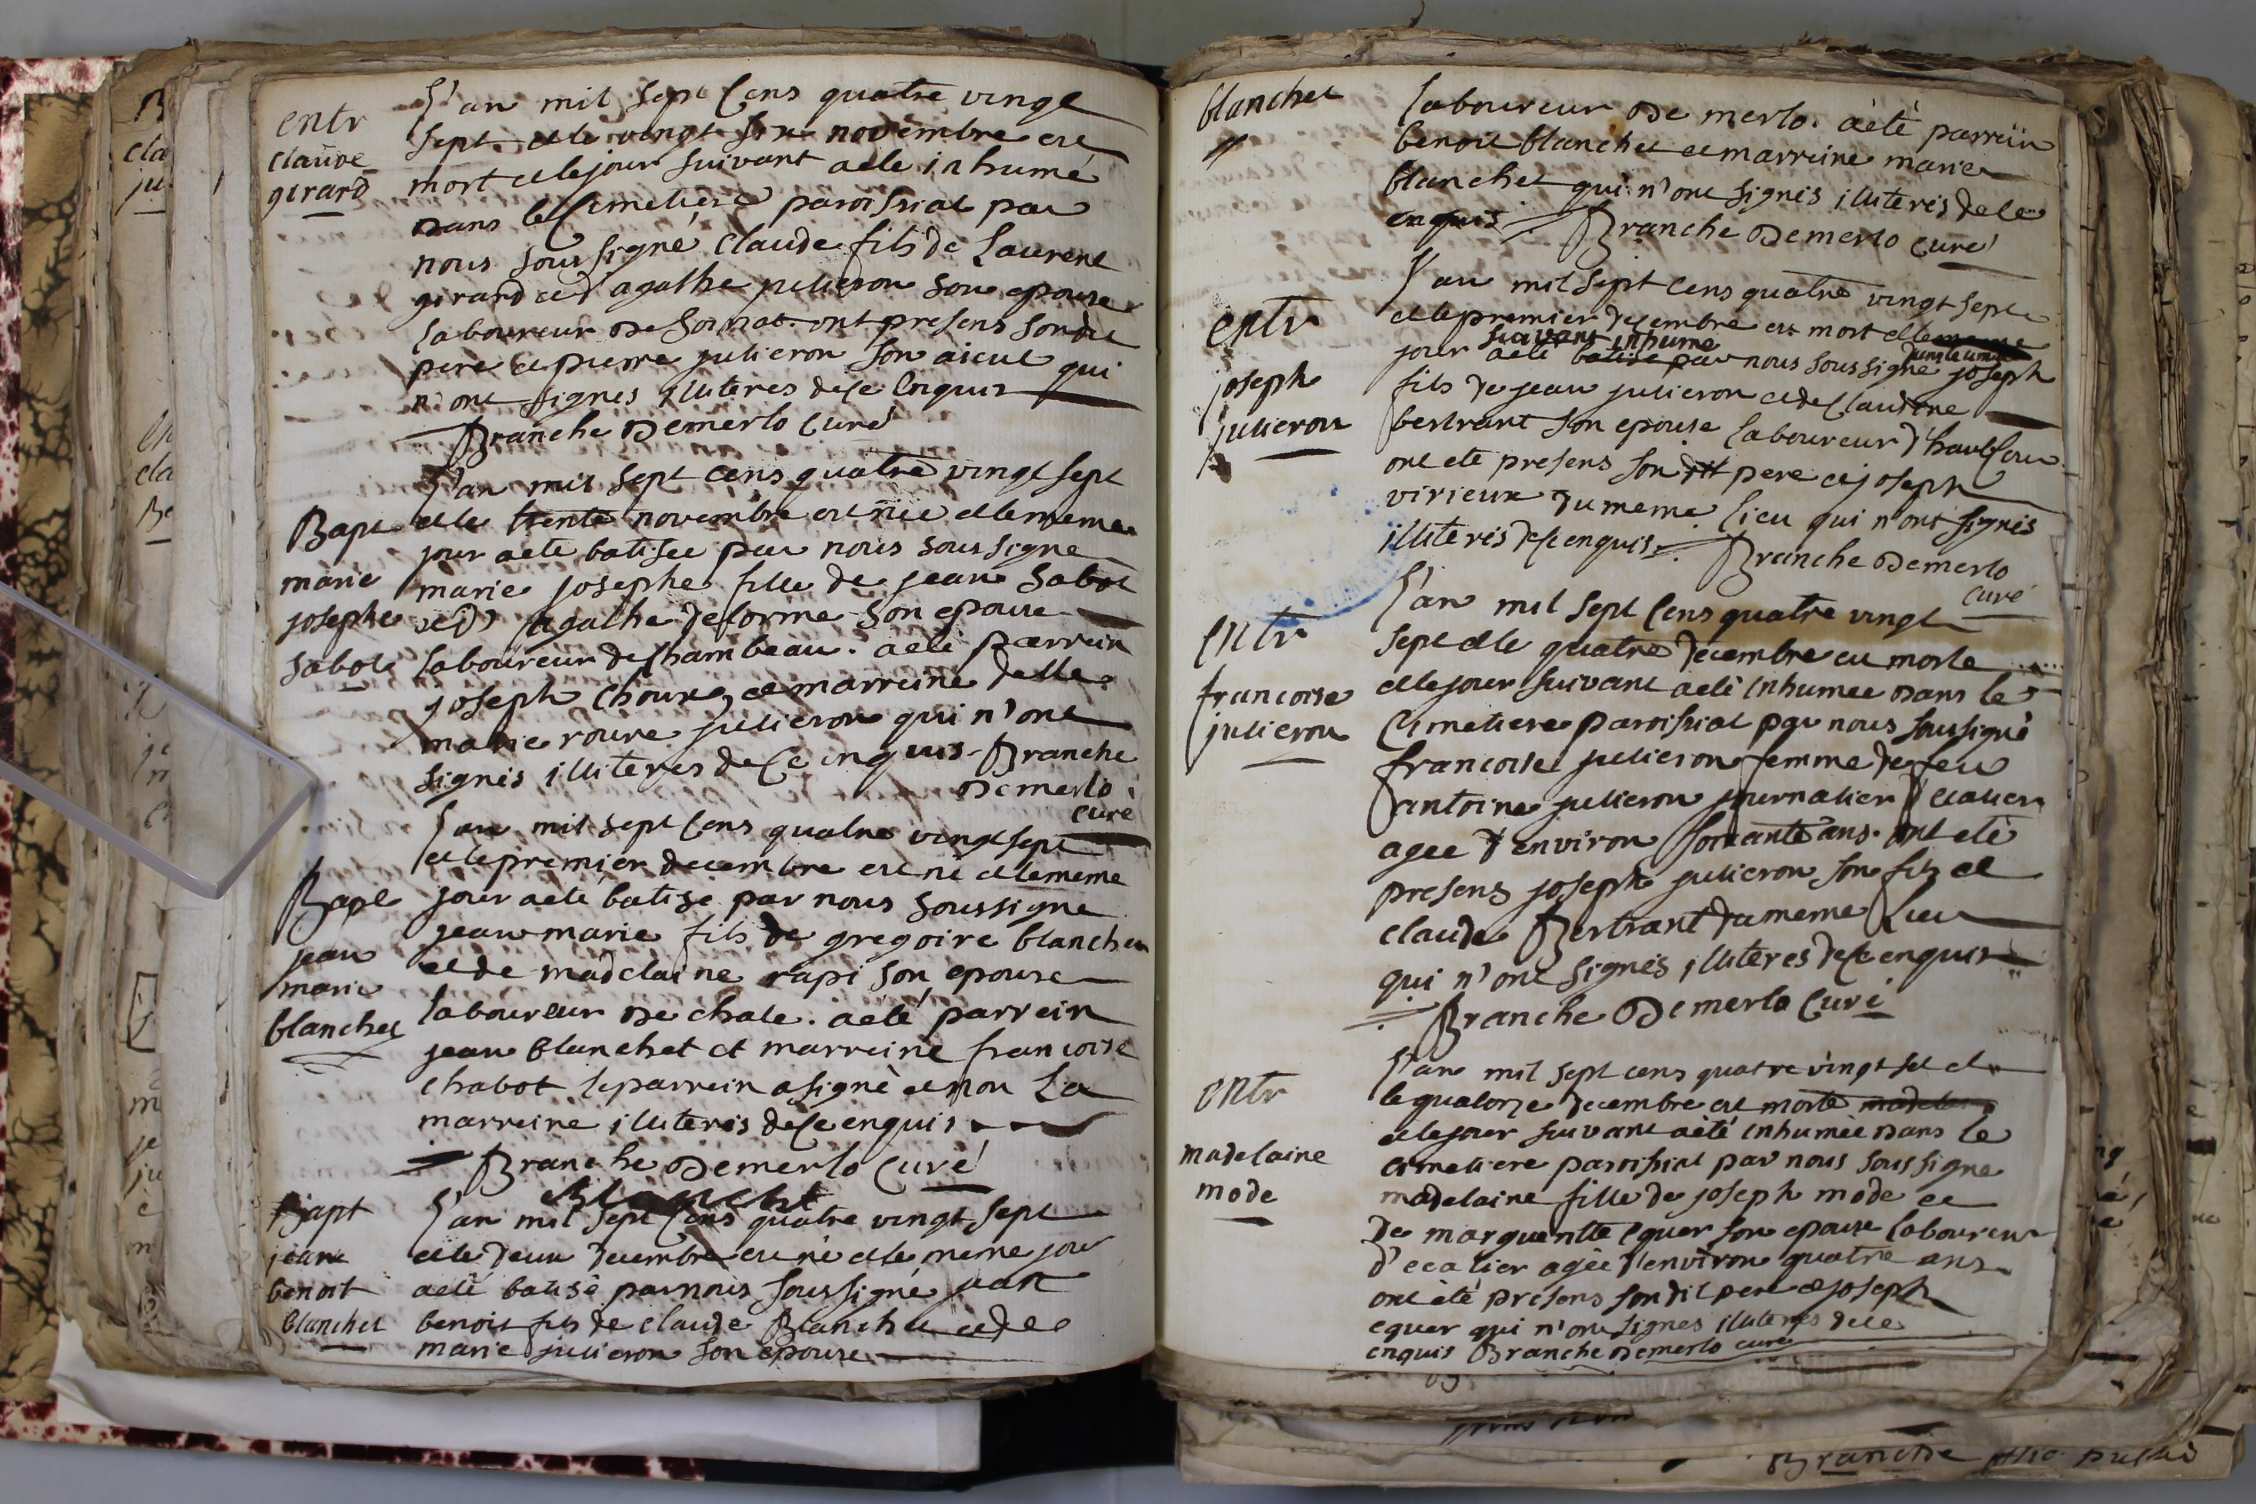 entr
claude
girard
L'an mil sept cens quatre vingt
sept et le vingt six novembre est
mort et le jour suivant a ete inhumé
dans le cimetiere paroissial par
nous soussigné claude fils de Laurent
girard et d'agathe julieron son epouse
laboureur de ont presens son dit
pere et pierre julieron son aieul qui
n'ont signés illiteres de ce enquis
Branche Demerlo Curé
Bapt
marie
josephe
sabot
L'an mil sept cens quatre vingt sept
et le trente novembre est née et le meme
jour a ete batisee par nous soussigne
marie josephe fille de jean sabot
et d' agathe delorme son epouse
laboureur de chambeau. a ete parrein
joseph choux et marreine delle
marie roure julieron qui n'ont
signés illiteres de ce enquis - Branche
Demerlo
curé
Bapt
jean
marie
blanchet
L'an mil sept cens quatre vingt sept
et le premier decembre est né et le meme
jour a eté batisé par nous soussigne
jean marie fils de gregoire blanchet
et de madelaine rapi son epouse
laboureur de chale. a eté parrein
jean blanchet et marreine francoise
chabot le parrein a signé et non la
marreine illiteris de ce enquis
Branche Demerlo Curé
Blanchet
Bapt
jean
benoit
blanchet
L'an mil sept cens quatre vingt sept
et le deux decembre est né et le meme jour
a eté batisé par nous soussigné jean
benoit fils de claude Blanchet et de
marie julieron son epouse
blanchet
laboureur de merlo. a été parrein
benoit blanchet et marreine marie
blanchet qui n'ont signés illiteris de ce
enquis Branche Demerlo Curé
entr
joseph
julieron
L'an mil sept cens quatre vingt sept
et le premier decembre est mort et le meme
suivant inhumé
jour a eté batisé par nous soussigne joseph
fils de jean julieron et de claudine
bertrant son epouse laboureur d'
ont eté presens son dit pere et joseph
virieux du meme lieu qui n'ont signés
illiteris de ce enquis. Branche Demerlo
curé
entr
francoise
julieron
L'an mil sept cens quatre vingt
sept et le quatre decembre est morte
et le jour suivant a eté inhumee dans le
cimetiere paroissial par nous soussigné
francoise julieron femme de feu
antoine julieron journalier d'ecalier
agee d'environ soixante ans. ont eté
presens joseph julieron son fils et
claude Bertrant du meme lieu
qui n'ont signés illiteres de ce enquis
Branche Demerlo Curé
entr
madelaine
mode
L'an mil sept cens quatre vingt set et
le quatorze decembre est morte
et le jour suivant a eté inhumée dans le
cimetiere paroissial par nous soussigne
madelaine fille de joseph mode et
de marguerite equer son epouse laboureur
d'ecalier agée d'environ quatre ans
ont été presens son dit pere et joseph
equer qui n'ont signes illiteres de ce
enquis Branche Demerlo curé